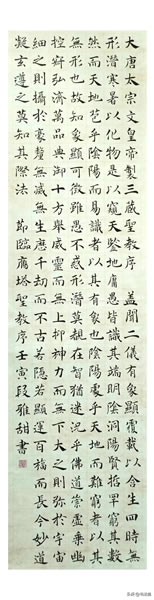 大唐太宗文皇帝製三藏聖教序 蓋聞二儀有象顯覆載以含生四時無
形潛寒暑以化物是以窺天鑒地庸愚皆識其端明陰洞陽賢哲罕窮其數
然而天地苞乎陰陽而易識者以其有象也陰陽處乎天地而難窮者以其
無形也故知象顯可徵雖愚不惑形潛莫覩在智猶迷況乎佛道崇虛乘幽
控寂弘濟萬品典御十方舉威靈而無上抑神力而無下大之則彌於宇宙
細之則攝於豪釐無滅無生歷千劫而不古若隱若顯運百福而長今妙道
凝玄遵之莫知其際法 節臨雁塔聖教序壬寅段雅甜書